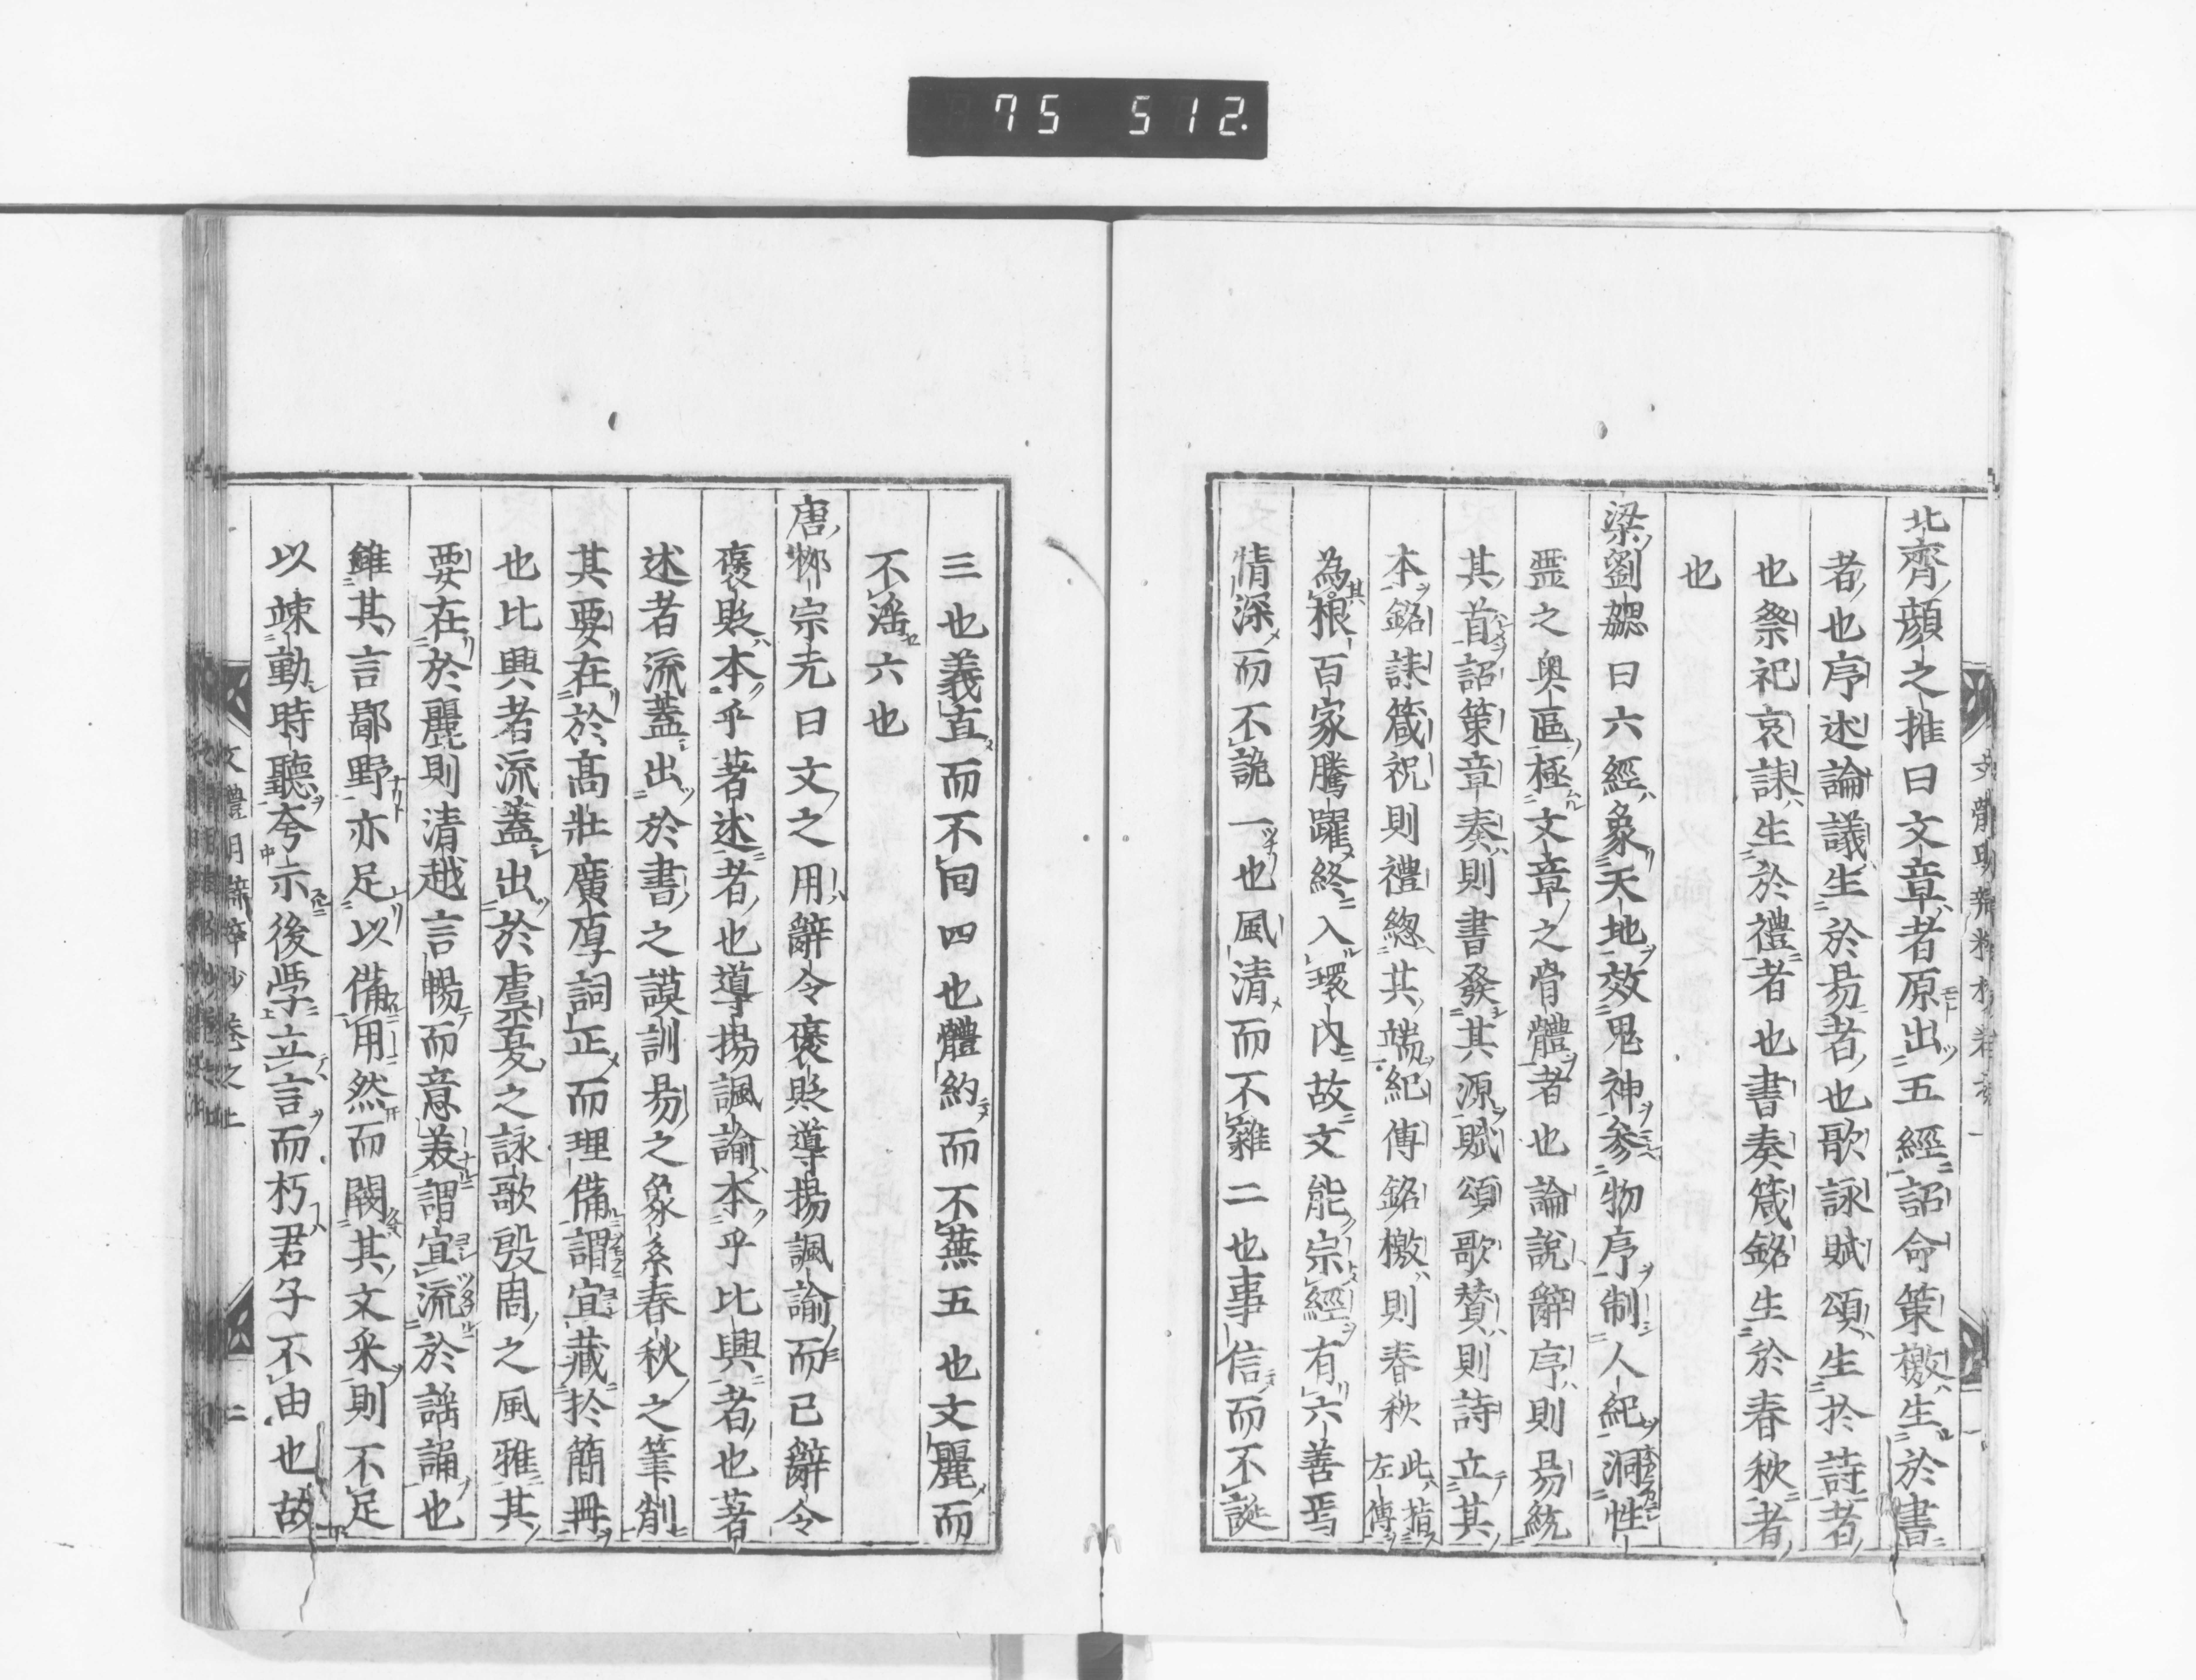 75 512.
北齊顔之推曰文章者原出五經詔命策檄生於書
者也序述論議生於易者也歌詠賦頌生於詩者
也祭祀哀誄生於禮者也書奏箴銘生於春秋者
也
梁劉勰曰六經象天地效鬼神參物序制人紀洞性
靈之奥區極文章之骨體者也論說辭序則易統
其首詔策章奏則書發其源賦頌歌贊則詩立其
本銘誄箴祝則禮緫其端紀傳銘檄則春秋此指左傳
為其根百家騰躍終入環内故文能宗經有六善焉
情深而不詭一也風清而不雜二也事信而不誕
三也義直而不回四也體約而不蕪五也文麗而
不滛六也
唐柳宗元曰文之用辭令褒貶導揚諷諭而已辭令
褒貶本乎著述者也導揚諷諭本乎比興者也著
述者流蓋出於書之謨訓易之象系春秋之筆削
其要在於高壯廣厚詞正而理備謂宜藏於簡冊
也比興者流蓋出於虞夏之詠歌殷周之風雅其
要在於麗則清越言暢而意美謂宜流於謡誦也
雖其言鄙野亦足以備用然而闕其文采則不足
以竦動時聽夸示後學立言而朽君子不由也故
文體明辯粹抄卷之上 二